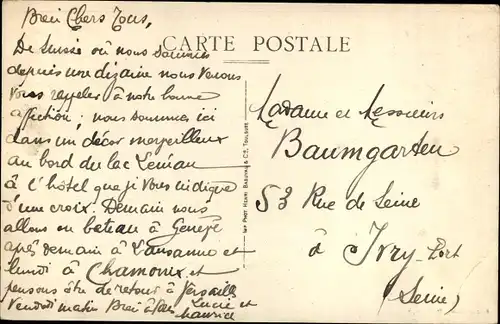 Bien Chers Tous,
CARTE POSTALE
De Suisse où nous sommes
depuis une dizaine nous venons
vous rappeler à notre bonne
affection ; nous sommes ici
dans un décor merveilleux
au bord du lac Léman
à l'hôtel que je vous indique
d'une croix. Demain nous
allons en bateau à Genève
après demain à Lausanne et
lundi à Chamonix et
pensons être de retour à Versailles
Vendredi matin Bien à vous Lucie et
Maurice
IMP PHOT HENRI BASUYAU & Cie, TOULOUSE
Madame et Messieurs
Baumgarten
53 Rue de Seine
à Ivry-Port
(Seine)